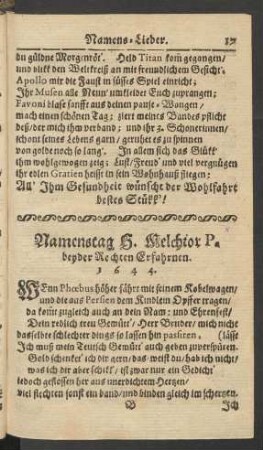 Namens-Lieder.
du güldne Morgenröt'. Held Titan kom̃ gegangen/
und blikk den Weltkreiß an mit freundlichem Gesicht.
Apollo mir die Faust in süsses Spiel einricht;
Ihr Musen alle Neun umkleider Euch zuprangen;
Favoni blase sanffe aus deinen pause-Wangen/
mach einen schönen Tag; ziert meines Bandes pflicht
deß/der mich ihm verband; und ihr 3. Schonerinnen/
schont seines Lebens garn/ geruhet es zuspinnen
von golbe noch so lang'. In allem sich das Glükk
ihm wohlgewogen zeig; Lust/Freud' und viel vergnügen
ihr edlen Gratien heisst in sein Wohnhauß fliegen:
All' Ihm Gesundheit wünscht der Wohlfahrt
bestes Stükk'!
Namenstag H. Melchior P.
beyder Rechten Erfahrnen.
1644.
WEnn Phœbus höher fährt mit seinem Kobelwagen/
und die aus Persien dem Kindlein Opffer tragen/
da kom̃t zugleich auch an dein Nam: und Ehrenfest/
Dein redlich treu Gemüt'/ Herr Bruder/ mich nicht
dasselbe schlechter dings so lassen hin passiren. (lässt
Ich muß mein Teutsch Gemüt' auch geben zuverspüren.
Gold schenken' ich dir gern/ das weist du/ hab ich nicht/
was ich dir aber schikk'/ ist zwar nur ein Gedicht'
jedoch geflossen her aus unerdichtem Hertzen/
viel flechten sonst ein band/und binden gleich im schertzen.
B Ich